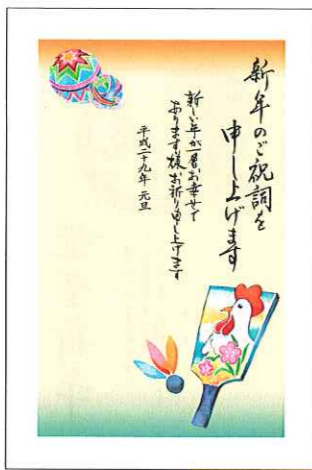 新年のご祝詞を
申し上げます
新しい年が一番お幸せで
あります様お祈り申し上げます
平成二十九年 元旦